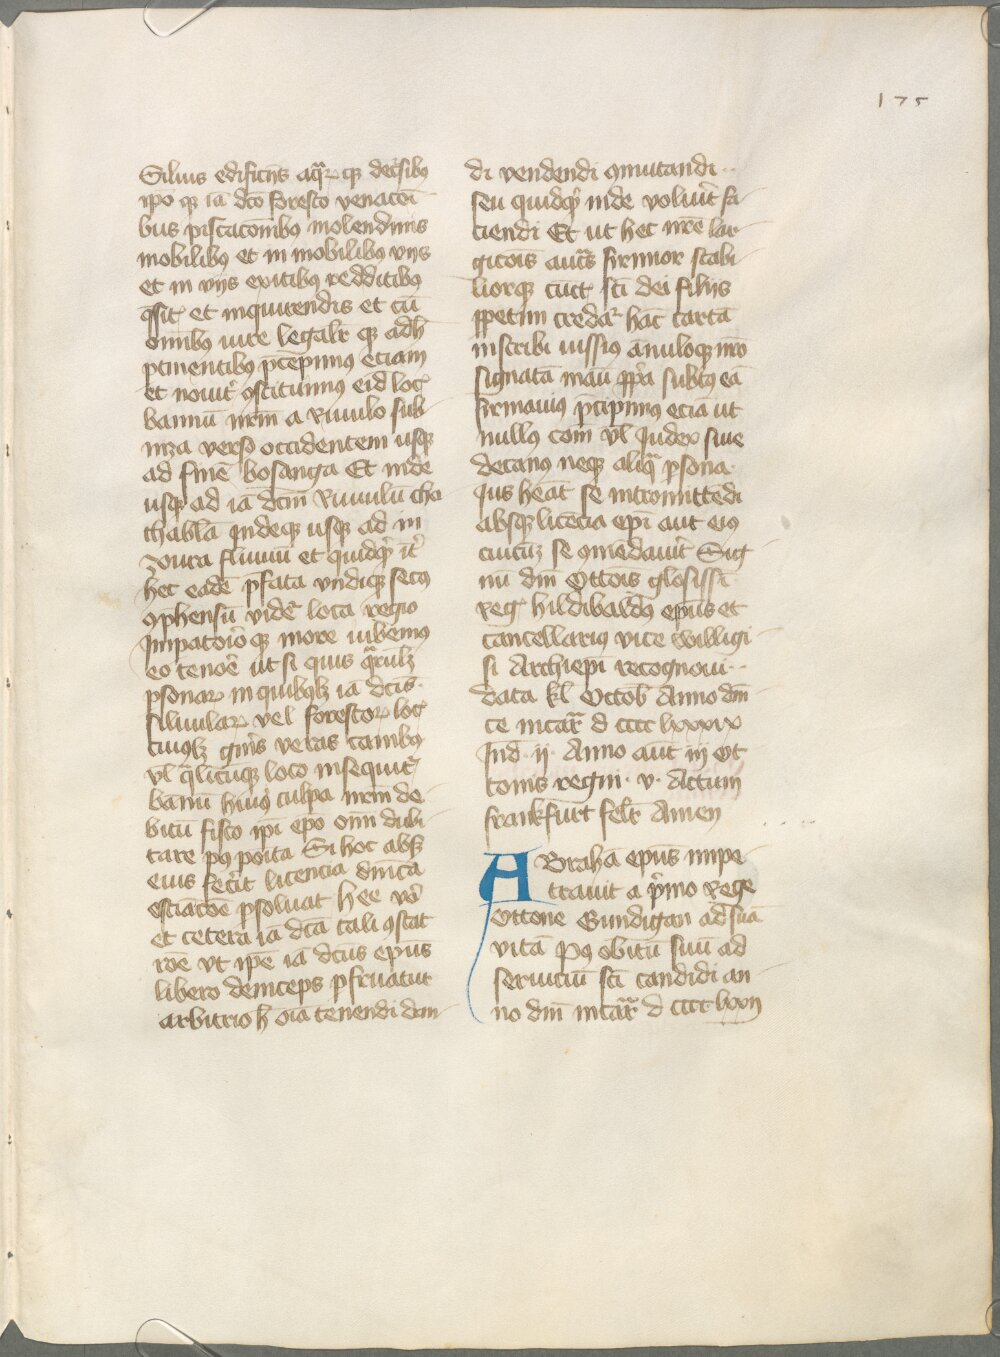 175
Siluis edificiis aqͣrꝝ qꝫ decͬsibꝰ
ipō qꝫ iā dc̄o foresto venacōi
bus piscacōnibꝰ molendinis
mobilibꝰ et in mobilibꝰ viis
et in viis exitibꝰ redditibꝰ
q̄sitꝭ et inquirendis et cū
omībꝰ iure legalr̄ qꝫ adh̄
ptinentibꝰ p̄cepimꝰ etiam
et nouit᷑ ꝯstituimꝰ eid̄ locꝭ
bannū nr̄m a Riuulo sub
inza verso occidentem usqꝫ
ad finē bosanga Et inde
usqꝫ ad iā dc̄m Riuulū cho
thablā Indeqꝫ usqꝫ ad in
zouca fluuiū et quidqͥd it᷑
hec eadē p̄fata vndiqꝫ secꝰ
ꝯp̄hensū vider̄ loca regio
Impatorioqꝫ more iubemꝰ
eo tenor̄e ut si quis qͣrūlꝫ
psonarꝝ in quibꝰlꝫ iā dc̄is
siluularꝝ vel forestorꝝ locꝭ
cuiꝰlꝫ gn̄is veras cambꝰ
vl q̄licūqꝫ loco insequit᷑
bannū huiꝰ culpa nr̄m de
bitū fisco ip̄i ep̄o om̄i dubi
tare pꝰpoīta Si hoc absqꝫ
eius fec̄it licencia dn̄ica
esticacōe psoluat hee vō
et cetera iā dc̄a tali ꝯstat
rōe vt ip̄e iā dc̄us ep̄us
libero deinceps pfruatur
arbitrio h̄ oīa tenendi dan
di vendendi ꝯmutandi
seu quidqͥd inde voluīt fa
ciendi Et ut hec nr̄e lar
gicōis auctͣs firmior stabi
liorqꝫ cūctꝭ sc̄i dei filiis
ꝑpetim credat᷑ hāc cartā
inscribi iussimꝰ ānuloqꝫ nr̄o
signatā manū ꝓpͥa subtꝰ eā
firmauimꝰ p̄cipimꝰ eciā ut
nullꝰ com̄ vl̄ Judex siue
decanꝰ neqꝫ aliqͣ p̄sona
Jus heāt se intromittēdi
absqꝫ licēcia ep̄i aut eiꝰ
cuicūqꝫ se ꝯmēdauīt Sig
nū dn̄i Ottōis glōsissī
regꝭ hildibaldꝰ ep̄us et
cancellariꝰ vice willigi
si Archiepi recognoui
Data kl̄ Octob̄ Anno dn̄i
ce incar̄ d cccc lxxxix
Ind̄ ii Anno aut̄ iii Ot
tonis regni v Actum
frankfurt felr̄ Amen
ABrahā ep̄us impe
trauit a pͥmo Rege
Ottone Gundigan ad suā
vitā Pꝰ obitū suū ad
seruiciū sc̄i candidi an
no dn̄i incar̄ d cccc lxxii